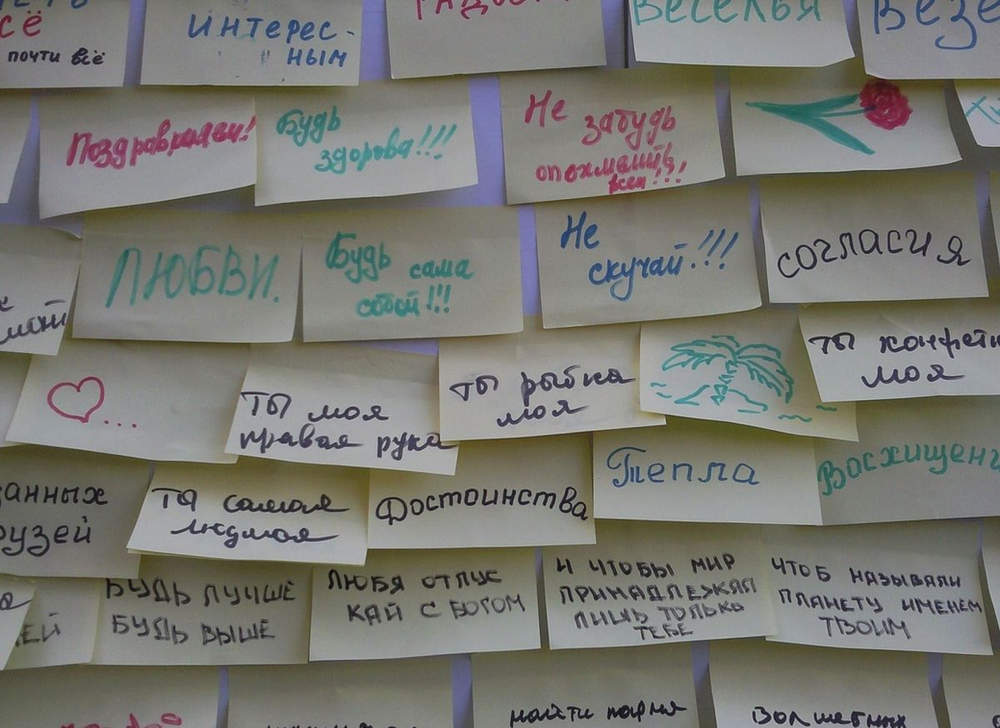 сё
почти всё
Интерес-
ным
Веселья
Везе
Поздравляем!
Будь
здорова!!!
Не
забудь
опохмелить
всех!!!
ЛЮБВИ.
Будь сама
собой!!!
Не
скучай!!!
согласия
...
ты моя
правая рука
ты рыбка
моя
ты конфетк
моя
данных
рузей
ты самая
Достоинства
Тепла
Восхищени
БУДЬ ЛУЧШЕ
БУДЬ ВЫШЕ
ЛЮБЯ ОТПУС
КАЙ С БОГОМ
И ЧТОБЫ МИР
ПРИНАДЛЕЖАЛ
ЛИШЬ ТОЛЬКО
ТЕБЕ
ЧТОБ НАЗЫВАЛИ
ПЛАНЕТУ ИМЕНЕМ
ТВОИМ
ЕЙ
найти парня